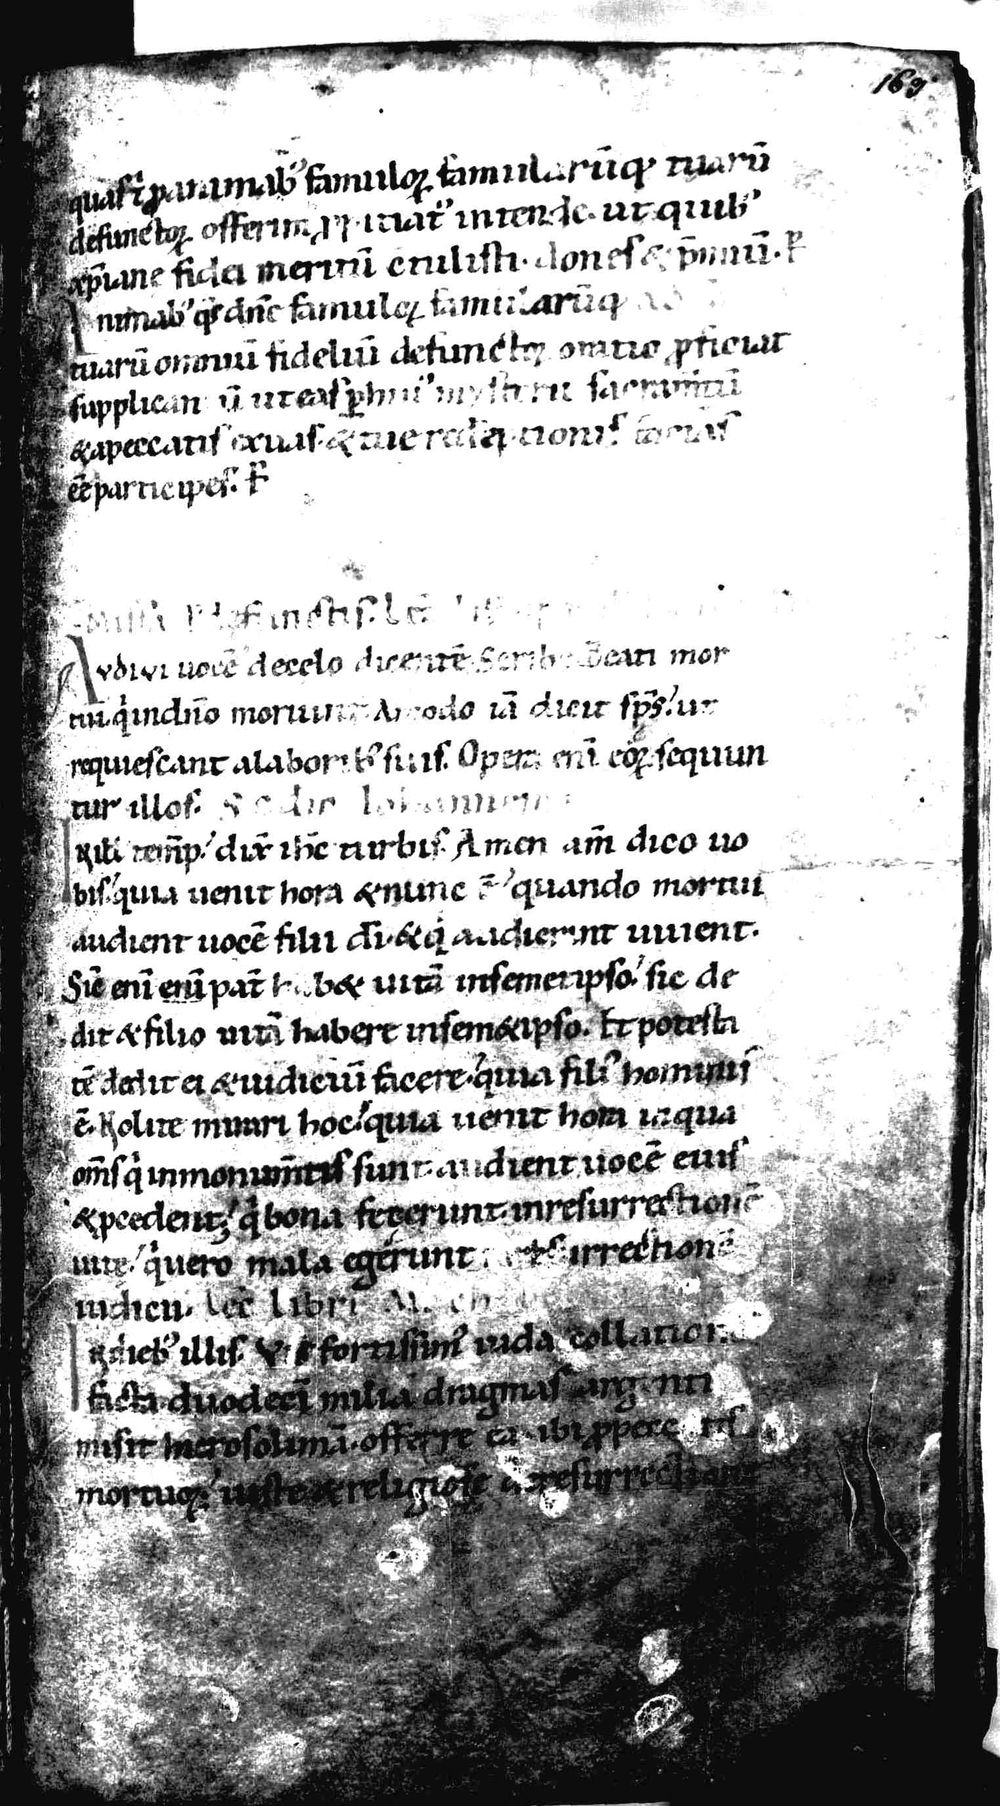 169
quas t̄ p animab' famuloꝝ famularūq; tuarū
defunctoꝝ offerim' ꝓpitiat' intende. ut quib'
xp̄iane fidei meritū c̄tulisti. dones & p̄miū. P
Animab' q̄s dn̄e famuloꝝ famularūq;
tuarū omniū fideliū defunctoꝝ oratio ꝓficiat
supplicantiū ut eas p hui' mysterii sacram̄tū
& a peccatis exuas. & tue redēptionis facias
eē participes. P
defunctis. Lec̄
Audivi uocē de celo dicentē Scribe Beati mor
tui q̇ in dn̄o moriunt Amodo iā dicit sp̄s. ut
requiescant a laborib' suis. Opera enī eoꝝ sequun
tur illos. Sc̄dm Iohannem
In illo temp̄. dix̄ ih̄c turbis. Amen am̄ dico uo
bis. quia uenit hora & nunc ē quando mortui
audient uocē filii dī. & q̇ audierint uiuent.
Sic̄ enī enī pat̄ hab& uitā in semetipso. sic de
dit & filio uitā habere in sem&ipso. Et potesta
tē dedit ei & iudiciū facere. quia fili' hominis
ē. Nolite mirari hoc. quia uenit hora in qua
om̄s q̇ in monum̄tis sunt audient uocē eius
& ꝓcedent. q̇ bona fecerunt in resurrectionē
uite. q̇ uero mala egerunt resurrectionē
iudicii. Lec̄ Libri Mach
In dieb' illis. Vir fortissim' iuda collatione
facta duodecī milia dragmas argenti
misit hierosolimā. offerre eā ibi ꝓ peccatis
mortuoꝝ. iuste & religiose de resurrectione